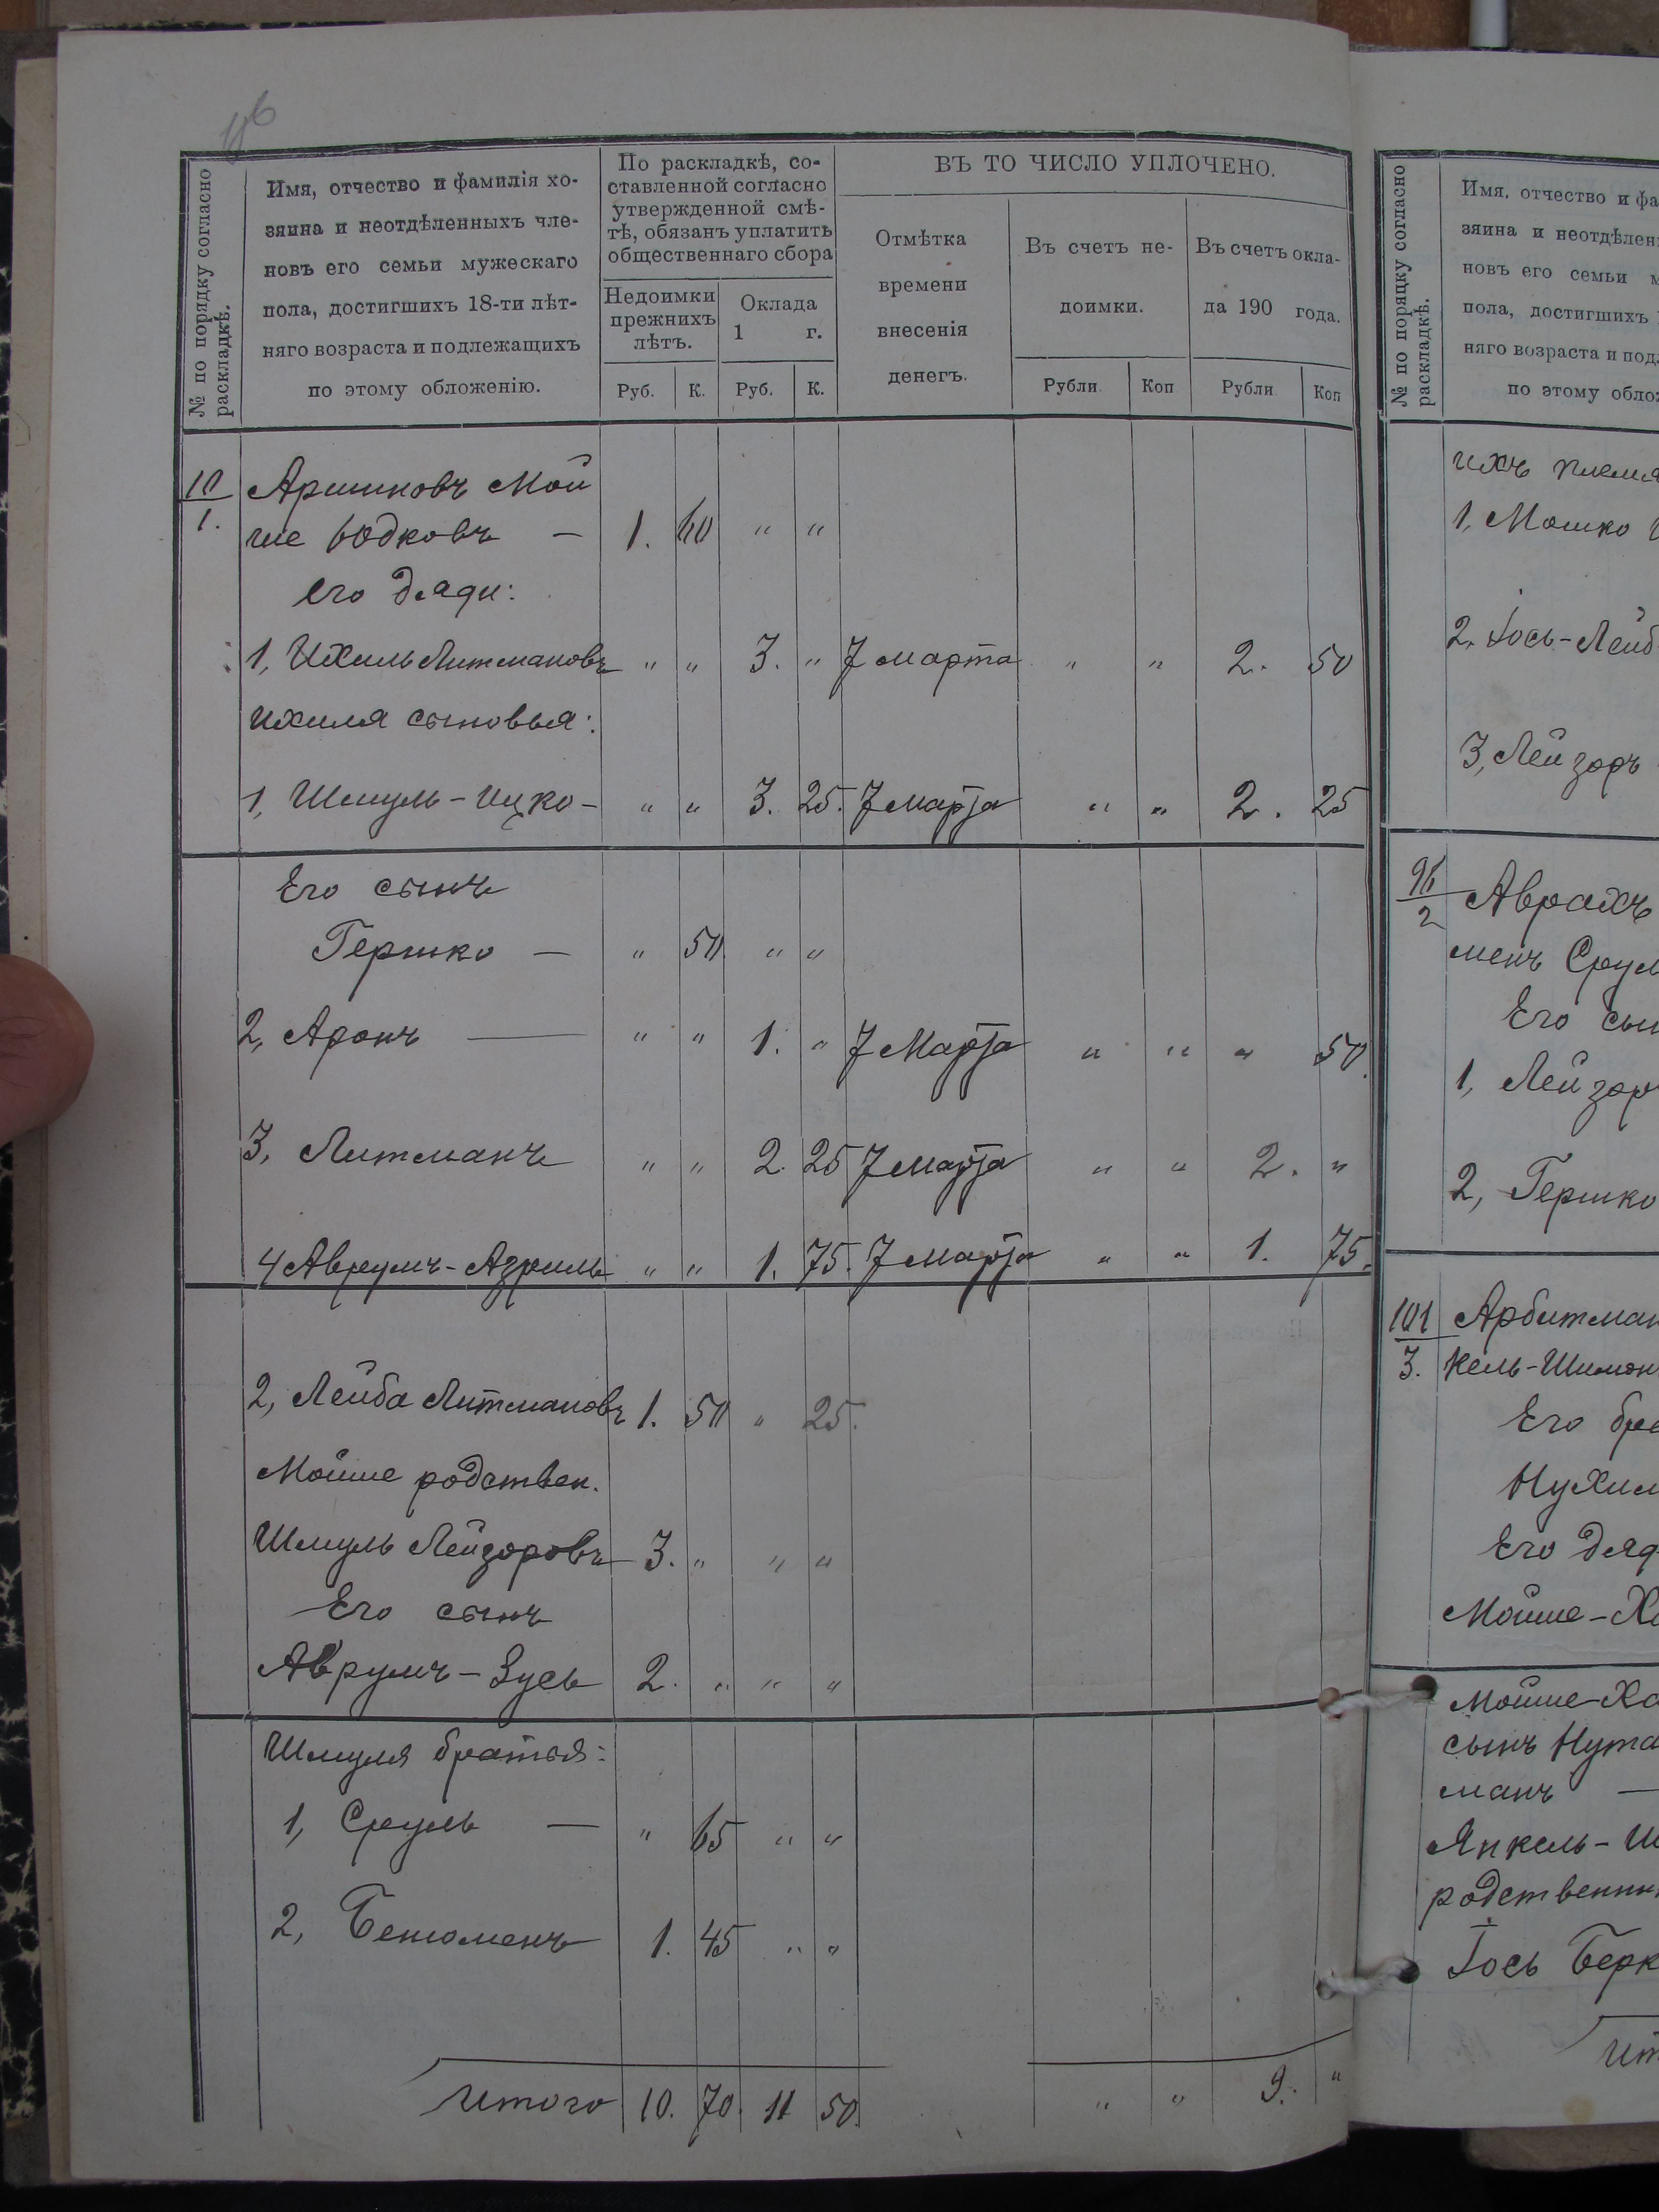 № по порядку согласно
раскладкѣ.
Имя, отчество и фамилія хо-
зяина и неотдѣленныхъ чле-
новъ его семьи мужескаго
пола, достигшихъ 18-ти лѣт-
няго возраста и подлежащихъ
по этому обложенію.
По раскладкѣ, со-
ставленной согласно
утвержденной смѣ-
тѣ, обязанъ уплатить
общественнаго сбора
Недоимки
прежнихъ
лѣтъ.
Оклада
1 г.
Руб. К. Руб. К.
ВЪ ТО ЧИСЛО УПЛОЧЕНО.
Отмѣтка
времени
внесенія
денегъ.
Въ счетъ не-
доимки.
Въ счетъ окла-
да 190 года.
Рубли Коп Рубли Коп
10/1. Аршиновъ Мой
ше Юдковъ — 1. 60 " "
его дяди:
1, Ихиль Литмановъ " " 3. " 7 марта " " 2. 50
Ихиля сыновья:
1, Шмуль-Ицко- " " 3. 25. 7 Марта " " 2. 25
Его сынъ
Гершко — " 50 " "
2, Аронъ — " " 1. " 7 Марта " " " 50.
3, Литманъ " " 2. 25 7 Марта " " 2. "
4 Аврумъ-Азриль " " 1. 75. 7 Марта " " 1. 75.
2, Лейба Литмановъ 1. 50 " 25.
Мойше родствен.
Шмуль Лейзоровъ 3. " " "
Его сынъ
Аврумъ-Зусь 2. " " "
Шмуля братья:
1, Сруль — " 65 " "
2, Бенюменъ 1. 45 " "
Итого 10. 70. 11 50. " " 9. "
№ по порядку согласно
раскладкѣ.
Имя, отчество и фа
зяина и неотдѣлен
новъ его семьи м
пола, достигшихъ
няго возраста и под
по этому обло
ихъ племя
1, Мошко
2, Іось-Лейб
3, Лейзоръ
96/2 Аврахъ
менъ Срул
Его сын
1, Лейзор
2, Гершко
101/3. Арбитман
кель-Шимон
Его бра
Нухим
Его дяд
Мойше-Ха
Мойше-Ха
сынъ Нута
манъ —
Янкель-Ш
родственни
Іось Берк
Ит